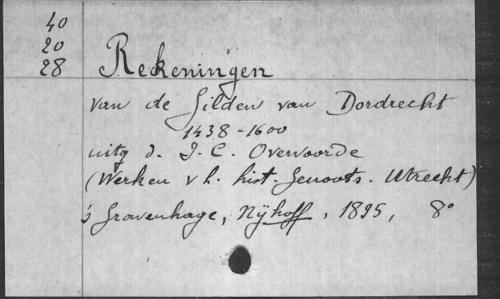 40
20
28
Rekeningen
van de Gilden van Dordrecht
1438-1600
uitg d. J. C. Overvoorde
(Werken v h. hist. Genoots. Utrecht)
's Gravenhage, Nijhoff, 1895, 8°